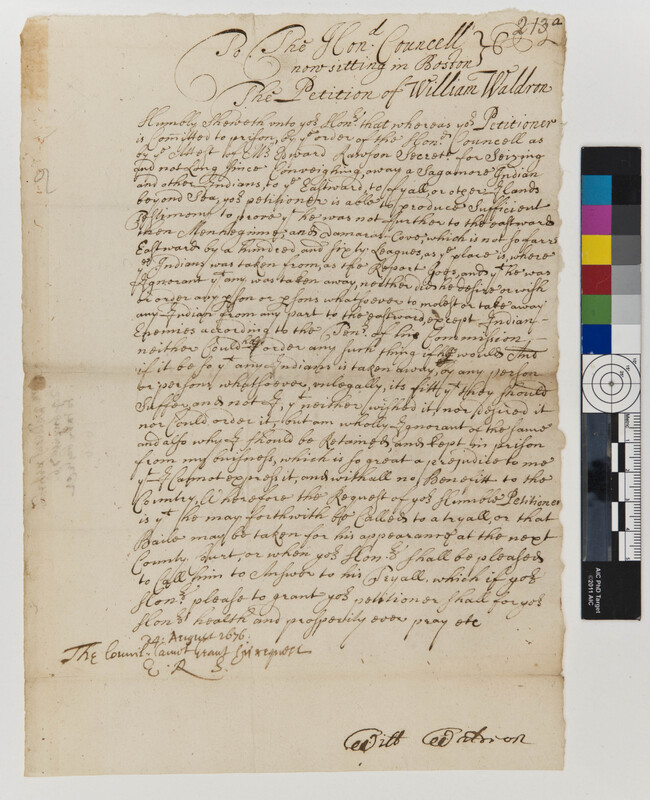 213a
To The Hon.d Councell
now sitting in Boston
The Petition of William Waldron
Humbly Sheweth unto yor Honrs that whereas yor Petitioner
is Comitted to prison, by order of the Honrd Councell as
by ye Attest of Mr Edward Rawson Secretr for Seizing
and not Long Since Conveighing away a Sagamore Indian
and other Indians, to ye Eastward, to fyall, or other Ilands
beyond Sea, yor petitioner is able to produce Sufficient
Testimony to prove yt he was not further to the eastward
then Menhegine, and Damaras Cove, which is not so farre
Eastward by a hundred and sixty Leagues, as ye place is, where
ye Indians was taken from, as the Report goes, and yt he was
Ignorant yt any was taken away, neither did he desire or wish
or order any pson or psons whatsoever to molest or take away
any Indian from any part to the eastward, except Indian
Enemies according to the Tenr of his Commission,
neither Could he order any such thing if he would
if it be so yt any Indians is taken away, by any person
or persons whatsoever, unlegally, its fitt yt they should
Suffer, and not I, yt neither wished it, nor desired it
nor Could order it, but am wholly Ignorant of the same
and also why I should be Retained, and kept in prison
from my buisness, which is so great a prejudice to me
yt I Cannot express it, and withall no Benefitt to the
Country, Wherefore the Request of yor Humble Petitioner
is yt he may forthwith be Called to a tryall, or that
Baile may be taken for his appearance at the next
County Court, or when yor Honrs shall be pleased
to Call him to Answer to his Tryall, which if yor
Honrs please to grant yor petitioner shall for yor
Honrs health and prosperity ever pray etc
24: August 1676
The Councill cannot grant his request
E. R. S.
Will Waldron